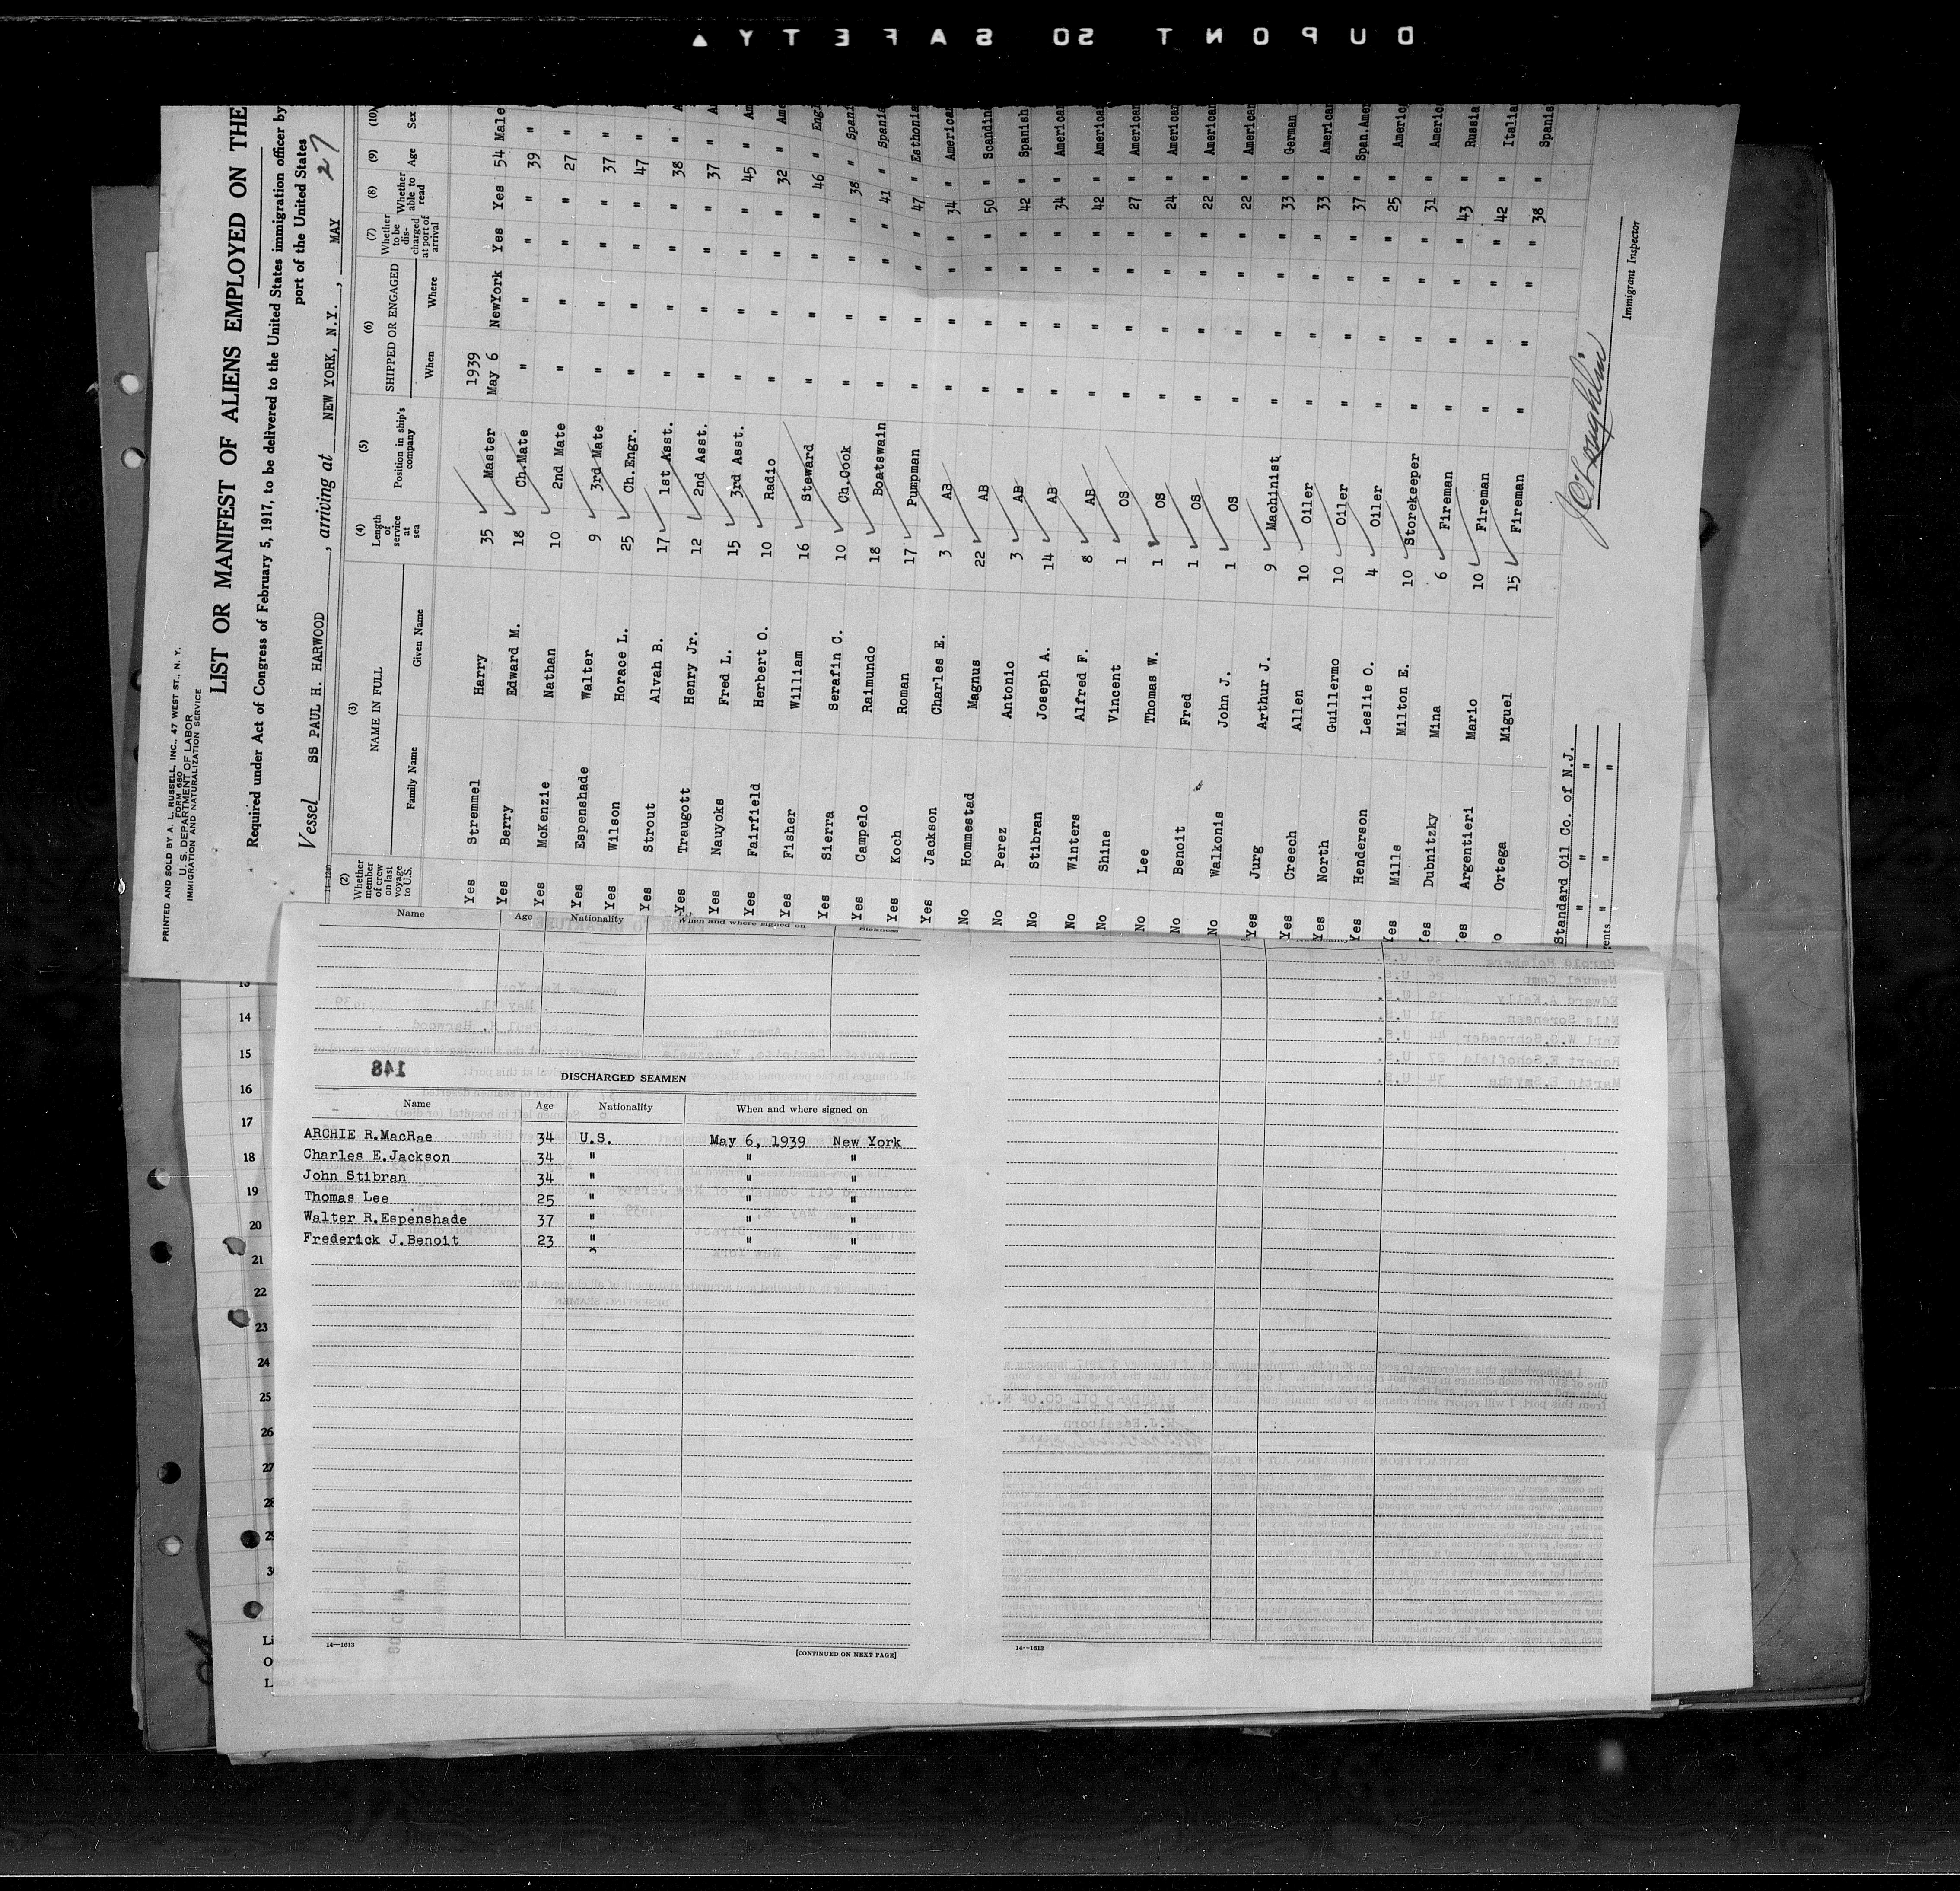 DUPONT SO SAFETY
PRINTED AND SOLD BY A. L. RUSSELL, INC., 47 WEST ST., N. Y.
FORM 680
U. S. DEPARTMENT OF LABOR
IMMIGRATION AND NATURALIZATION SERVICE
LIST OR MANIFEST OF ALIENS EMPLOYED ON THE
Required under Act of Congress of February 5, 1917, to be delivered to the United States immigration officer by
port of the United States
Vessel SS PAUL H. HARWOOD, arriving at NEW YORK, N.Y., MAY 27
(2) (3) (4) (5) (6) (7) (8) (9) (10)
Whether member of crew on last voyage to U.S. NAME IN FULL Family Name Given Name Length of service at sea Position in ship's company SHIPPED OR ENGAGED When Where Whether to be discharged at port of arrival Whether able to read Age Sex
1939
Yes Stremmel Harry 35 Master May 6 NewYork Yes Yes 54 Male
Yes Berry Edward M. 18 Ch.Mate " " " " 39 "
Yes McKenzie Nathan 10 2nd Mate " " " " 27 "
Yes Espenshade Walter 9 3rd Mate " " " " 37 "
Yes Wilson Horace L. 25 Ch.Engr. " " " " 47 "
Yes Strout Alvah B. 17 1st Asst. " " " " 38 " A
Yes Traugott Henry Jr. 12 2nd Asst. " " " " 37 " A
Yes Nauyoks Fred L. 15 3rd Asst. " " " " 45 " Am
Yes Fairfield Herbert O. 10 Radio " " " " 32 " Ame
Yes Fisher William 16 Steward " " " " 46 " Engl
Yes Sierra Serafin C. 10 Ch.Cook " " " " 38 " Spani
Yes Campelo Raimundo 18 Boatswain " " " " 41 " Spanis
Yes Koch Roman 17 Pumpman " " " " 47 " Esthonia
Yes Jackson Charles E. 3 AB " " " " 34 " American
No Hommestad Magnus 22 AB " " " " 50 " Scandin
No Perez Antonio 3 AB " " " " 42 " Spanish
No Stibran Joseph A. 14 AB " " " " 34 " American
No Winters Alfred F. 8 AB " " " " 42 " American
No Shine Vincent 1 OS " " " " 27 " American
No Lee Thomas W. 1 OS " " " " 24 " American
No Benoit Fred 1 OS " " " " 22 " American
No Walkonis John J. 1 OS " " " " 22 " American
Yes Jurg Arthur J. 9 Machinist " " " " 33 " German
Yes Creech Allen 10 Oiler " " " " 33 " American
Yes North Guillermo 10 Oiler " " " " 37 " Span.Amer
Yes Henderson Leslie O. 4 Oiler " " " " 25 " Americ
Yes Mills Milton E. 10 Storekeeper " " " " 31 " Americ
Yes Dubnitzky Mina 6 Fireman " " " " 43 " Russia
Yes Argentieri Mario 10 Fireman " " " " 42 " Italia
No Ortega Miguel 15 Fireman " " " " 38 " Spanis
Standard Oil Co. of N.J.
" " "
" " "
Immigrant Inspector
Name Age Nationality When and where signed on Sickness
148
DISCHARGED SEAMEN
Name Age Nationality When and where signed on
ARCHIE R.MacRae 34 U.S. May 6, 1939 New York
Charles E.Jackson 34 " " "
John Stibran 34 " " "
Thomas Lee 25 " " "
Walter R.Espenshade 37 " " "
Frederick J.Benoit 23 " " "
14—1613
[CONTINUED ON NEXT PAGE]
14—1613
Edward A.Kelly 19 U.S.
Nils Sorensen 31 U.S.
Karl W.G.Schroeder 44 U.S.
Robert E.Schofield 27 U.S.
Martin P.Smythe 34 U.S.
13
14
15
16
17
18
19
20
21
22
23
24
25
26
27
28